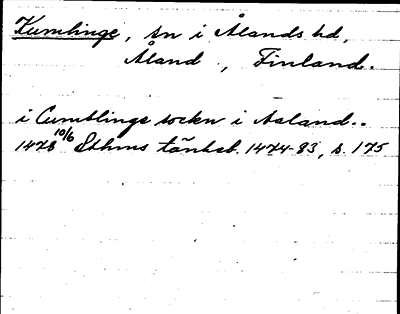 Kumlinge, sn i Ålands hd,
Åland, Finland.
i Cumblinge sockn i Aaland..
1478 10/6 Sthms tänkeb. 1474-83, s. 175